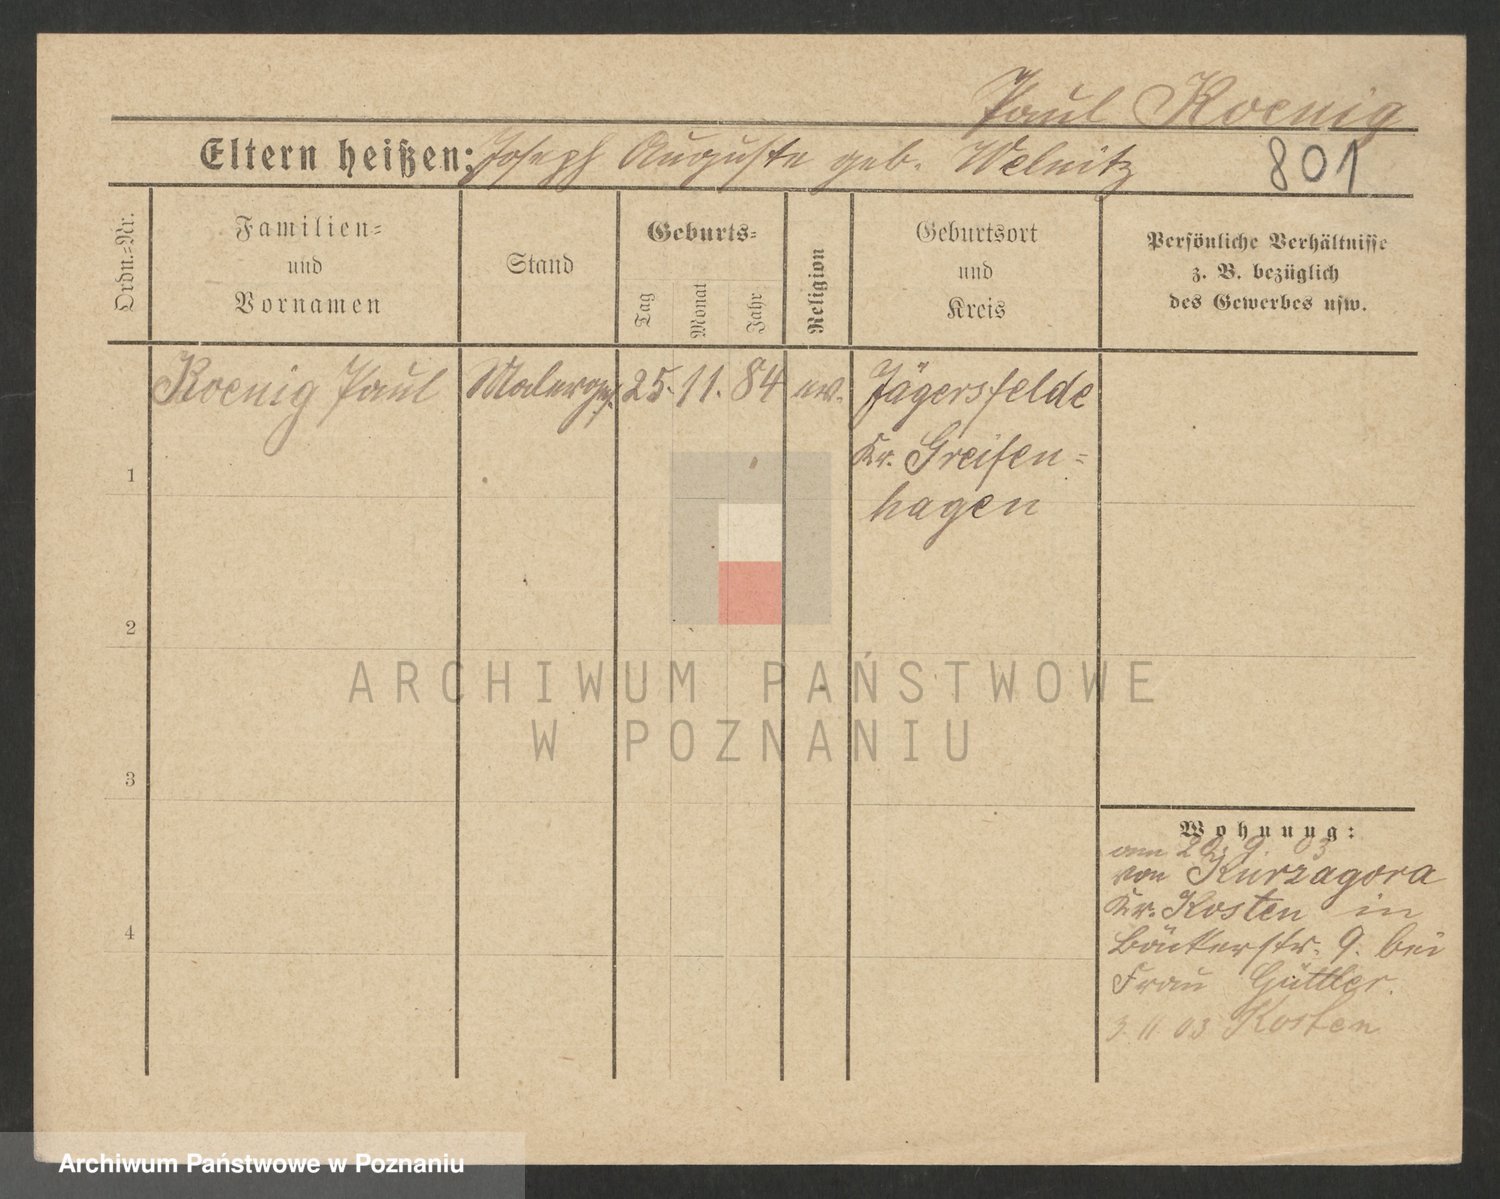 Paul Koenig
Eltern heißen: Joseph Auguste geb. Welnitz 801
Ordn.-Nr.
Familien-
und
Vornamen
Stand
Geburts-
Tag
Monat
Jahr
Religion
Geburtsort
und
Kreis
Persönliche Verhältnisse
z. B. bezüglich
des Gewerbes usw.
Koenig Paul Malerges. 25. 11. 84 ev. Jägersfelde
Kr. Greifen-
hagen
1
2
3
4
ARCHIWUM PAŃSTWOWE
W POZNANIU
Wohnung:
am 9. 03
von Kurzagora
Kr. Kosten in
Bäckerstr. 9. bei
Frau Güttler.
3. 11 03 Kosten
Archiwum Państwowe w Poznaniu